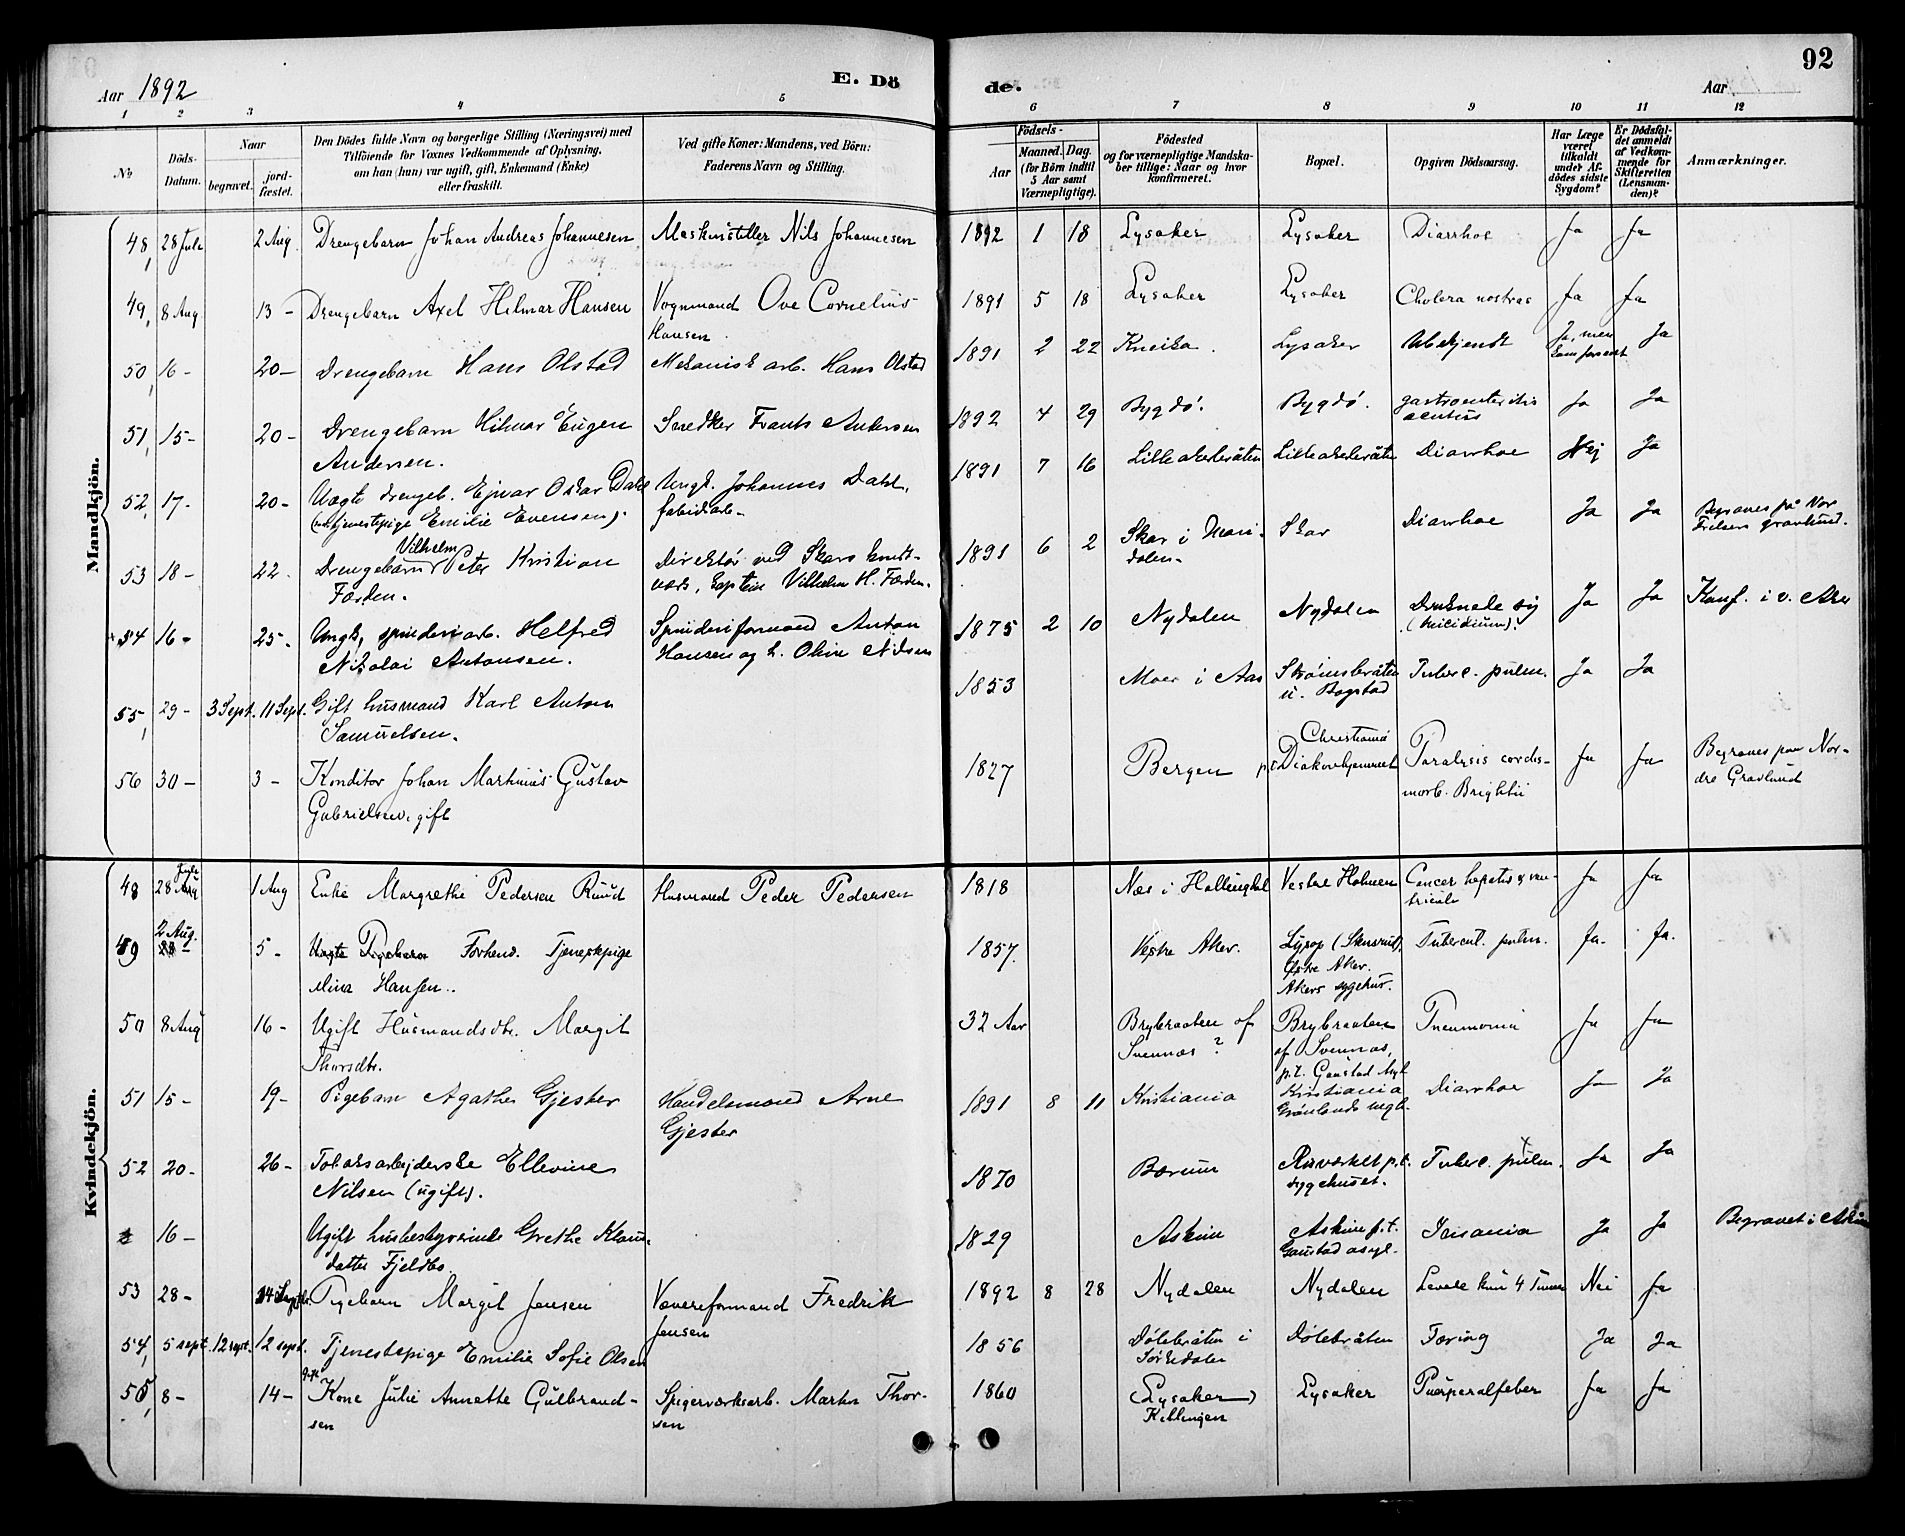 Aar 1892
E. Dö
de.
92
Aar
1 2 3 4 5
6 7 8 9 10 11 12
No
Döds-Datum.
Naar
begravet.
jord-fæstet.
Den Dödes fulde Navn og borgerlige Stilling (Næringsvei) med
Tilföiende for Voxnes Vedkommende af Oplysning,
om han (hun) var ugift, gift, Enkemand (Enke)
eller fraskilt.
Ved gifte Koner: Mandens, ved Börn:
Faderens Navn og Stilling.
Födsels-
Aar
Maaned. Dag.
(for Börn indtil
5 Aar samt
Værnepligtige).
Födested
og for værnepligtige Mandska-
ber tillige: Naar og hvor
konfirmeret.
Bopæl.
Opgiven Dödsaarsag.
Har Læge
været
tilkaldt
under Af-
dödes sidste
Sygdom?
Er Dödsfal-
det anmeldt
af Vedkom-
mende for
Skifteretten
(Lensman-
den)?
Anmærkninger.
Mandkjön.
48, 28 Juli 2 Aug. Drengebarn Johan Andreas Johannesen Maskinstiller Nils Johannesen 1892 1 18 Lysaker Lysaker Diarrhoe Ja Ja
49, 8 Aug 13 - Drengebarn Axel Hilmar Hansen Vognmand Ove Cornelius 1891 5 18 Lysaker Lysaker Cholera nostras Ja Ja
Hansen.
50, 16 - 20 - Drengebarn Hans Olstad Mekanisk arb. Hans Olstad 1891 2 22 Kneika. Lysaker Ubekjendt Ja, men Ja
51, 15 - 20 - Drengebarn Hilmar Eugen Snedker Frants Andersen 1892 4 29 Bygdø. Bygdø. gastroenteritis Ja Ja
Andersen. acutus
52, 17 - 20 - Uægte drengeb. Ejnar Oskar Dahl Ungk. Johannes Dahl, 1891 7 16 Lilleakerbråten Lilleakerbråten Diarrhoe Nej Ja
tjenestepige Emilie Evensen). fabrikarb.
53 18 - 22. Drengebarn Vilhelm Peter Kristian Direktør ved Skars krudt- 1891 6 2 Skar i Mari- Skar Diarrhoe Ja Ja Begraves på Vor
Færden. værk, Captein Vilhelm H. Færden. dalen. Frelsers gravlund.
54 16 - 25 - Ungk, spinderiarb. Helfred Spinderiformand Anton 1875 2 10 Nydalen Nydalen Druknede sig Ja Ja Konf. i v. Aker
Nikolai Antonsen. Hansen og h. Oline Nilsen (suicidium).
55, 29 - 3 Sept. 11 Sept. Gift husmand Karl Anton 1853 Moer i Aas Strømsbråten Tuberc. pulm. Ja Ja
Samuelsen. u. Bogstad
56 30 - 3 - Konditor Johan Martinius Gustav 1827 Bergen Christiania p.t. Diakonhjemmet Paralysis cordis - Ja Ja Begraves paa Nor-
Gabrielsen, gift morb. Brightii dre Gravlund
Kvindekjön.
48 28 Juli 1 Aug Enke Margrethe Pedersen Ruud Husmand Peder Pedersen 1818 Næs i Hallingdal Vestre Holmen Cancer hepatis & ven- Ja Ja
triculi
49 2 Aug. 5 - Forhend. Tjenestpige 1857. Vestre Aker. Lysop (Skusrud), Tubercul. pulm. Ja. Ja.
Mina Hansen.. Østre Aker.
Akers sygehus.
50 8 Aug 16 - Ugift Husmandsdtr. Margit 32 Aar Brybraaten af Brybraaten Pneumonia Ja Ja
Thorsdtr. Svennæs? af Svennæs,
p.t. Gaustad Asyl
51 15 - 19 - Pigebarn Agathe Gjester Handelsmand Arne 1891 8 11 Kristiania Kristiania Diarrhoe Ja Ja
Gjester Grønlands mgh.
52 20 - 26 - Tobaksarbejderske Ellevine 1870 Bærum p.t. Tuberc. pulm. Ja Ja
Nilsen (ugift). sygehuset.
16 - Ugift husbestyrerinde Grethe Klaus- 1829 Askim Askim p.t. Insania Ja Ja Begravet i Askim
datter Fjeldbo. Gaustad asyl.
53 28 - 14 Septbr. Pigebarn Margit Jensen Væverformand Fredrik 1892 8 28 Nydalen Nydalen Levede kun 4 Timer Nei Ja
Jensen
54, 5 sept. 12 sept. 12 sept. Tjenestepige Emilie Sofie Olsen 1856 Dølebråten i Dølebråten Tæring Ja Ja
Sørkedalen
55, 8 - 14 - Gift Kone Julie Annette Gulbrand- Spigerværksarb. Martin Thor- 1860 (Lysaker) Lysaker Puerperalfeber Ja Ja
sen sen Killingen